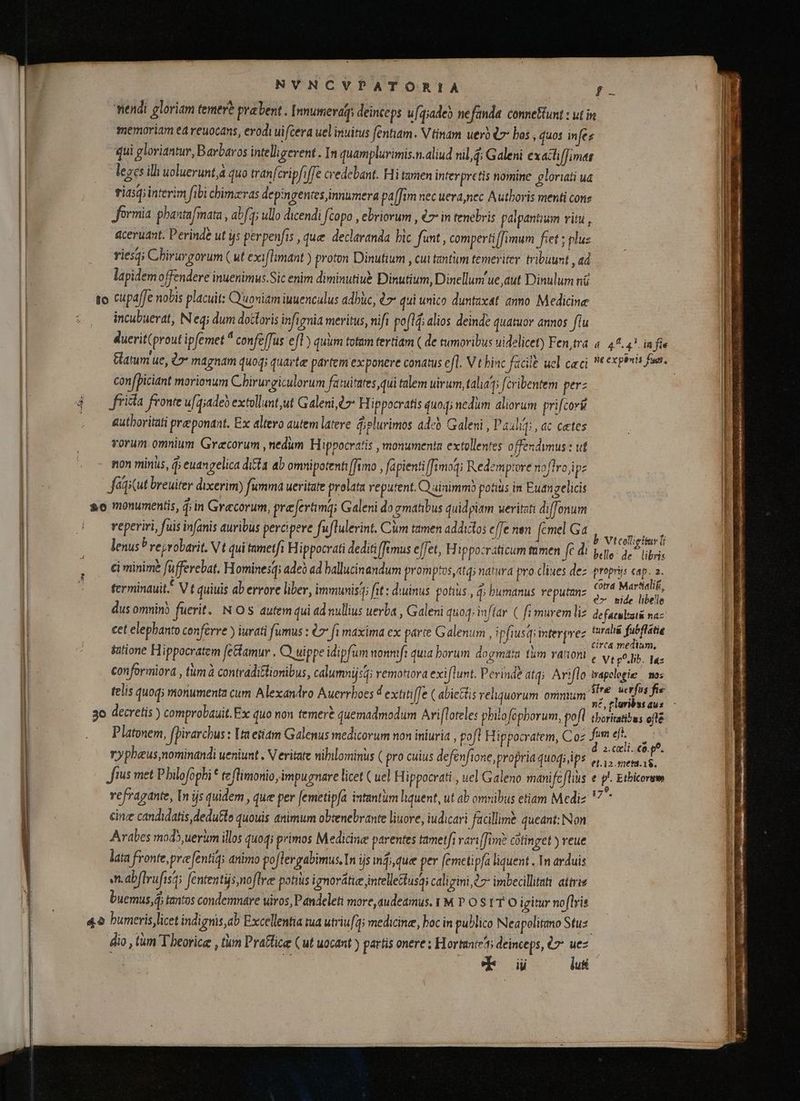 NVNCVPATORIA
nendi gloriam temerè præbent. Innumeraq́; deinceps usq;adeò nefanda connectunt: ut in
memoriam ea reuocans, erodi uiscera uel inuitus sentiam. Vtinam uerò & hos, quos infes
qui gloriantur, Barbaros intelligerent. In quamplurimis.n.aliud nil,q̃; Galeni exactissimas
leges illi uoluerunt, à quo transcripsisse credebant. Hi tamen interpretis nomine gloriati ua
riasq́; interim sibi chimæras depingentes, innumera passim nec uera, nec Authoris menti cons
formia phantasmata, absq; ullo dicendi scopo, ebriorum, & in tenebris palpantium ritu,
aceruant. Perinde ut ijs perpensis, quæ declaranda hic sunt, compertissimum fiet; plus
riesq́; Chirurgorum (ut existimant) proton Dinutium, cui tantium temeriter tribuunt, ad
lapidem offendere inuenimus. Sic enim diminutiuè Dinutium, Dinellum'ue, aut Dinulum nũ
10 cupasse nobis placuit: Quoniam iuuenculus adhuc, & qui unico duntaxat anno Medicinæ
incubuerat, Neq; dum doctoris insignia meritus, nisi postq̃; alios deinde quatuor annos stu
duerit (prout ipsemet a confessus est) quùm totam tertiam (de tumoribus uidelicet) Fen, tra
ctatum'ue, & magnam quoq; quartæ partem exponere conatus est. Vt hinc facilè uel cæci
conspiciant morionum Chirurgiculorum fatuitates, qui talem uirum, taliaq́; scribentem pers
fricta fronte usq;adeò extollunt, ut Galeni, & Hippocratis quoq; nedùm aliorum priscorũ
authoritati præponant. Ex altero autem latere q̃;plurimos adeò Galeni, Pauliq́;, ac cætes
rorum omnium Græcorum, nedùm Hippocratis, monumenta extollentes offendimus: ut
non minùs, q̃; euangelica dicta ab omnipotentissimo, sapientissimoq́; Redemptore nostro, ips
saq́; (ut breuiter dixerim) summa ueritate prolata reputent. Quinimmò potiùs in Euangelicis
20 monumentis, q̃; in Græcorum, præsertimq́; Galeni dogmatibus quidpiam ueritati dissonum
reperiri, suis insanis auribus percipere sustulerint. Cùm tamen addictos esse non semel Ga
lenus b reprobarit. Vt qui tametsi Hippocrati deditissimus esset, Hippocraticum tamen se di
ci minimè sufferebat. Hominesq́; adeò ad hallucinandum promptos, atq; natura pro cliues des
terminauit.c Vt quiuis ab errore liber, immunisq́; sit: diuinus potiùs, q̃; humanus reputans
dus omninò fuerit. NOS autem qui ad nullius uerba, Galeni quoq; instar (si murem lis
cet elephanto conferre) iurati sumus: & si maxima ex parte Galenum, ipsiusq́; interpres
tatione Hippocratem sectamur. Quippe idipsum nonnisi quia horum dogmata tùm rationi
conformiora, tùm à contradictionibus, calumnijsq́; remotiora existunt. Perindè atq; Aristo
telis quoq; monumenta cum Alexandro Auerrhoes d extitisse (abiectis reliquorum omnium
30 decretis) comprobauit. Ex quo non temerè quemadmodum Aristoteles philosophorum, post
Platonem, spirarchus: Ita etiam Galenus medicorum non iniuria, post Hippocratem, Cos
ryphæus, nominandi ueniunt. Veritate nihilominùs (pro cuius defensione, propria quoq;, ips
sius met Philosophi e testimonio, impugnare licet (uel Hippocrati, uel Galeno manifestiùs
refragante, In ijs quidem, quæ per semetipsa intantùm liquent, ut ab omnibus etiam Medis
cinæ candidatis, deducto quouis animum obtenebrante liuore, iudicari facillimè queant: Non
Arabes modò, uerùm illos quoq; primos Medicinæ parentes tametsi rarissimè cõtinget) reue
lata fronte, præsentiq́; animo postergabimus, In ijs inq̃;, quæ per semetipsa liquent. In arduis
.n.abstrusisq́; sententijs, nostræ potiùs ignorãtiæ, intellectusq́; caligini, & imbecillitati attris
buemus, q̃; tantos condemnare uiros, Pandeleti more, audeamus. IMPOSITO igitur nostris
40 humeris, licet indignis, ab Excellentia tua utriusq; medicinæ, hoc in publico Neapolitano Stus
dio, tùm Theoricæ, tùm Practicæ (ut uocant) partis onere: Hortanteq́; deinceps, & ues
* iij luti
a 4ª.4¹. in fi​ne
expõnis suæ.
b Vt colligitur li
bello de libris
proprijs cap. 2.
cõtra Martialĩ,
& uide libello
de facultatib nas
turalib substãtia
circa medium,
c Vt pº. lib. 1as
trapologiæ nos
stræ uersus fis
nẽ, pluribus aus
thoritatibus osté
sum est.
d 2.cœli. cõ.pº.
et.12.meta.18.
e pº. Ethicorum
17ª.